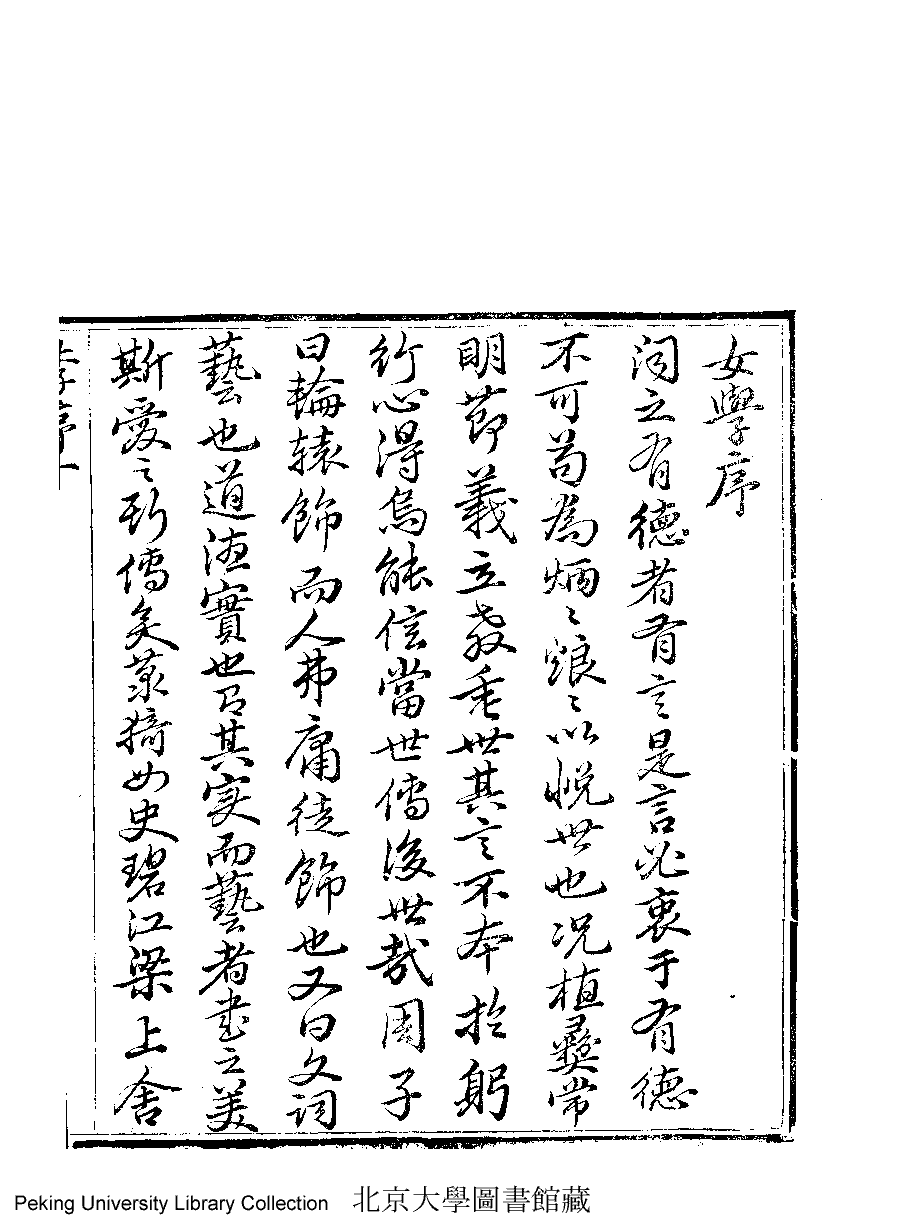 女學序
聞之有德者有言是言必衷于有德
不可苟為炳〻烺〻以悅世也况植彝常
明節義立教垂世其言不本於躬
行心得烏能信當世傳後世哉周子
曰輪轅飾而人弗庸徒飾也又曰文詞
藝也道德實也篤其实而藝者書之美
斯愛〻斯傳矣菉猗女史碧江梁上舍
女學序一
Peking University Library Collection 北京大學圖書館藏